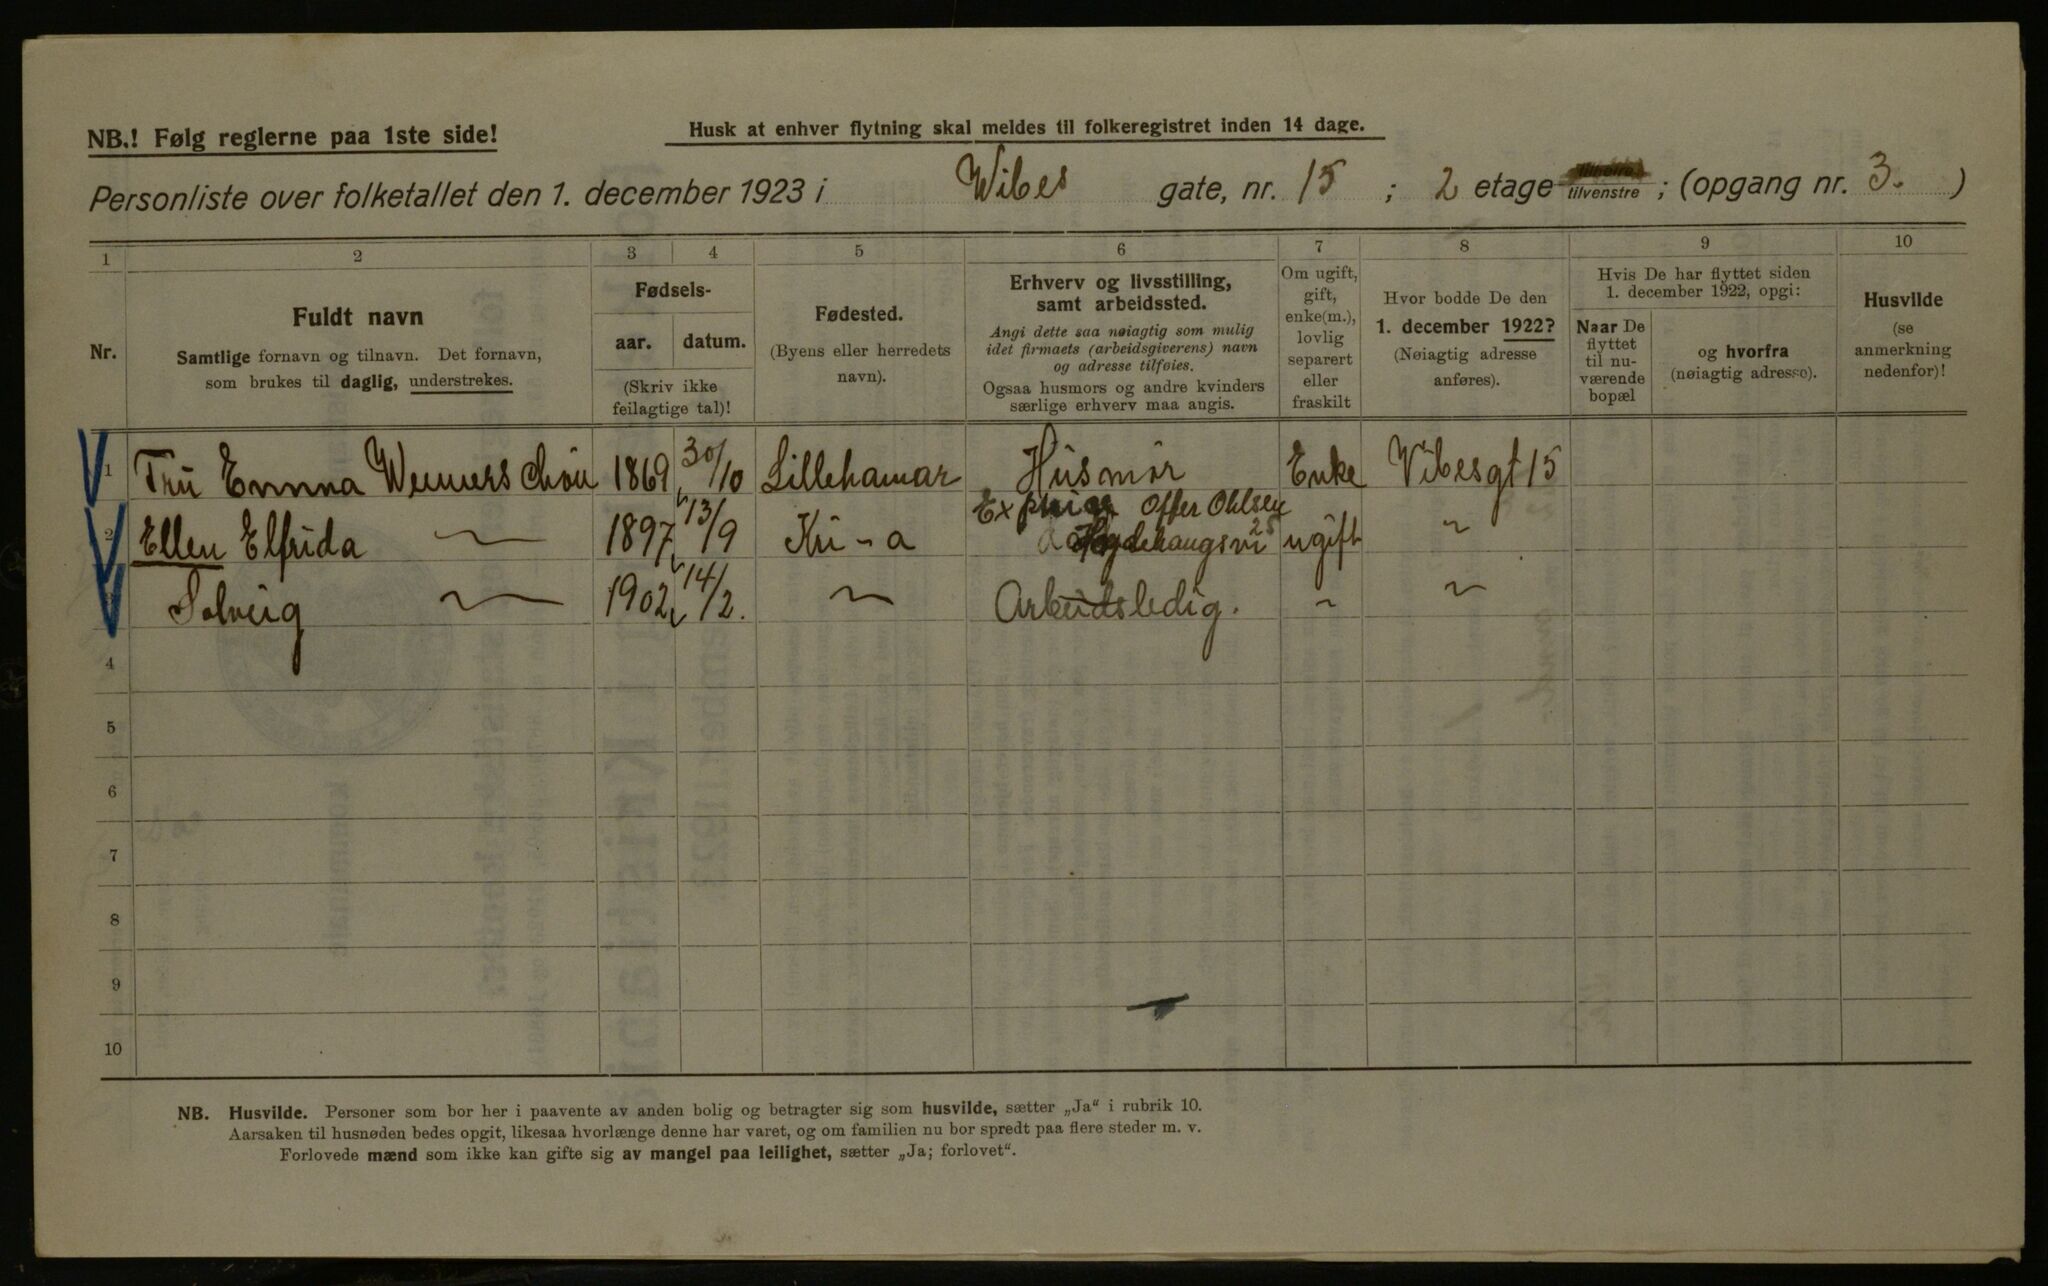 NB.! Følg reglerne paa 1ste side!
Husk at enhver flytning skal meldes til folkeregistret inden 14 dage.
Personliste over folketallet den 1. december 1923 i Wibes gate, nr. 15 ; 2 etage tilvenstre ; (opgang nr. 3. )
1 2 3 4 5 6 7 8 9 10
Nr.
Fuldt navn
Samtlige fornavn og tilnavn. Det fornavn,
som brukes til daglig, understrekes.
Fødsels-
aar. datum.
(Skriv ikke
feilagtige tal)!
Fødested.
(Byens eller herredets
navn).
Erhverv og livsstilling,
samt arbeidssted.
Angi dette saa nøiagtig som mulig
idet firmaets (arbeidsgiverens) navn
og adresse tilføies.
Ogsaa husmors og andre kvinders
særlige erhverv maa angis.
Om ugift,
gift,
enke(m.),
lovlig
separert
eller
fraskilt
Hvor bodde De den
1. december 1922?
(Nøiagtig adresse
anføres).
Hvis De har flyttet siden
1. december 1922, opgi:
Naar De
flyttet
til nu-
værende
bopæl
og hvorfra
(nøiagtig adresse).
Husvilde
(se
anmerkning
nedenfor)!
1 Fru Emma 1869 30/10 Lillehamar Husmor Enke Vibesgt 15
2 Ellen Elfrida 〃 1897 13/9 Kri-a Offer Ohlsen 25 ugift 〃
3 Solveig 〃 1902 14/2. 〃 Arbeidsledig. 〃 〃
4
5
6
7
8
9
10
NB. Husvilde. Personer som bor her i paavente av anden bolig og betragter sig som husvilde, sætter „Ja“ i rubrik 10.
Aarsaken til husnøden bedes opgit, likesaa hvorlænge denne har varet, og om familien nu bor spredt paa flere steder m. v.
Forlovede mænd som ikke kan gifte sig av mangel paa leilighet, sætter „Ja; forlovet“.